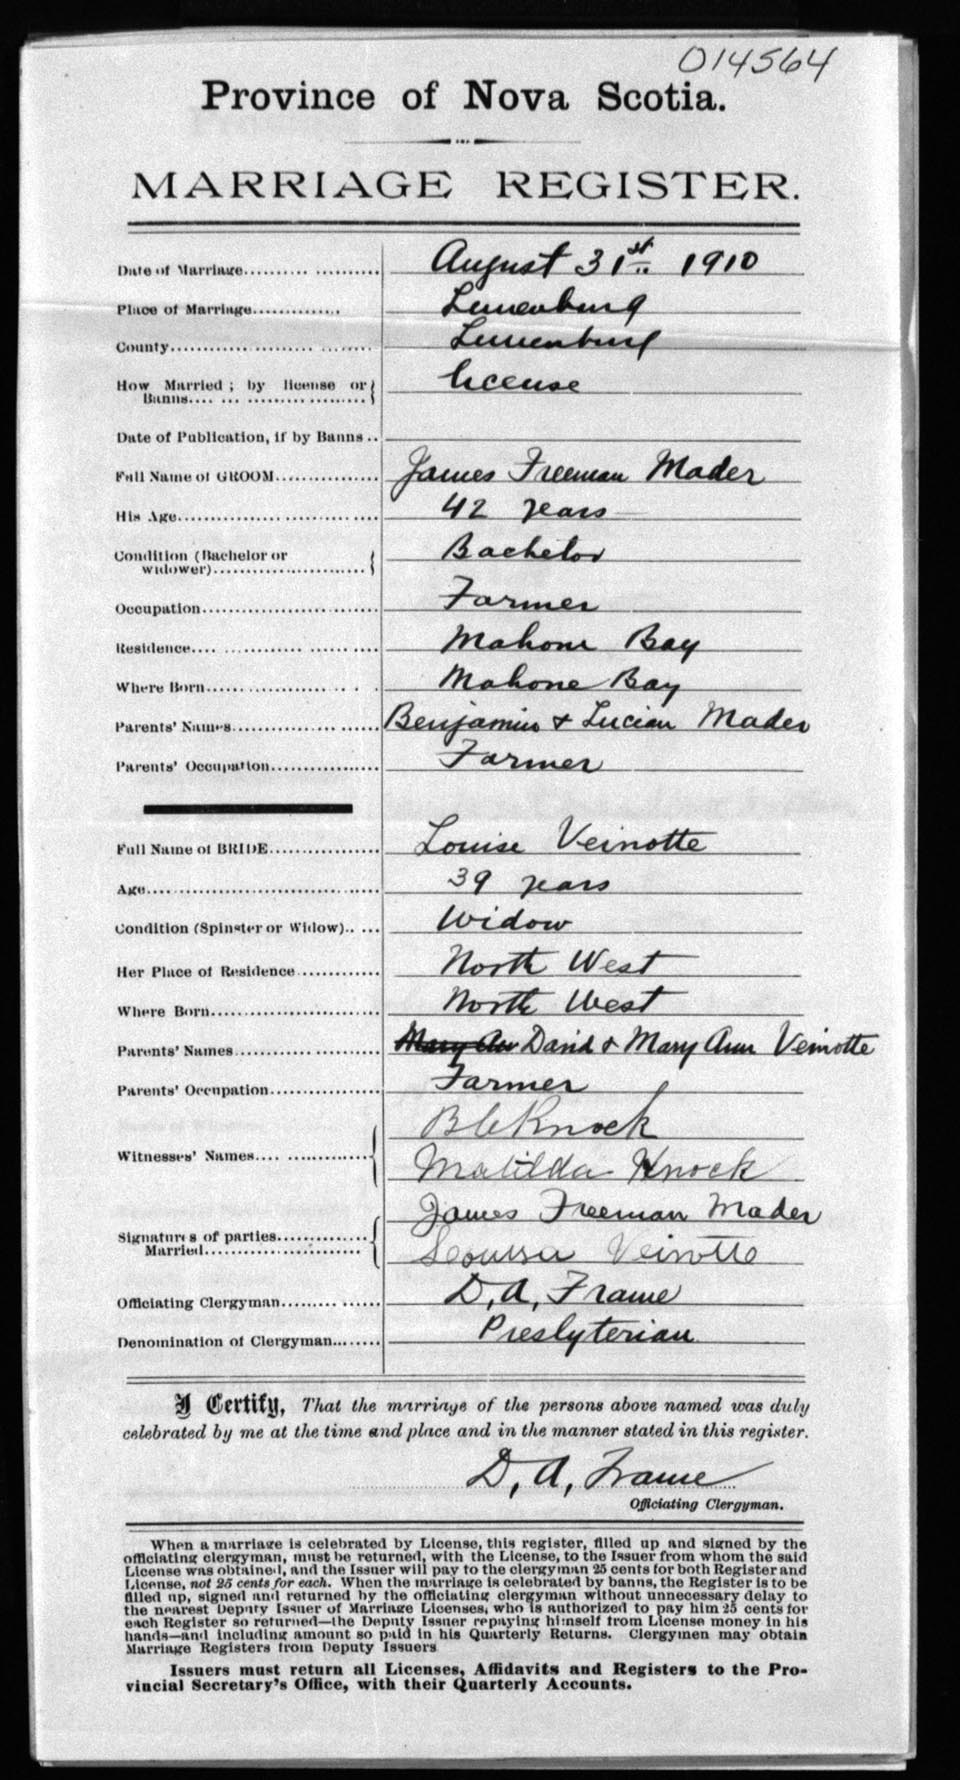 014564
Province of Nova Scotia.
MARRIAGE REGISTER.
Date of Marriage.......... ........... August 31st 1910
Place of Marriage............. Lunenburg
County....................... ........ Lunenburg
How Married ; by license or license
Banns.... ... ..................
Date of Publication, if by Banns ..
Full Name of GROOM................ James Freeman Mader
His Age............................... 42 years
Condition (Bachelor or Bachelor
widower)........................
Occupation........................... Farmer
Residence.... ............ ...... .... Mahone Bay
Where Born...................... . . . Mahone Bay
Parents' Names................ ...... Benjamin & Lucian Mader
Parents' Occupation................. Farmer
Full Name of BRIDE................. Louise Veinotte
Age.................................... 39 years
Condition (Spinster or Widow).. ... Widow
Her Place of Residence............ North West
Where Born.......................... North West
Parents' Names...................... Mary An David & Mary Ann Veinotte
Parents' Occupation................. Farmer
Knock
Witnesses' Names.... ..............
Matilda Knock
James Freeman Mader
Signatures of parties..............
Married........................ Veinotte
Officiating Clergyman......... ...... D, A, Frame
Denomination of Clergyman....... Presbyterian
I Certify, That the marriage of the persons above named was duly
celebrated by me at the time and place and in the manner stated in this register.
D, A, Frame
Officiating Clergyman.
When a marriage is celebrated by License, this register, filled up and signed by the
officiating clergyman, must be returned, with the License, to the Issuer from whom the said
License was obtained, and the Issuer will pay to the clergyman 25 cents for both Register and
License, not 25 cents for each. When the marriage is celebrated by banns, the Register is to be
filled up, signed and returned by the officiating clergyman without unnecessary delay to
the nearest Deputy Issuer of Marriage Licenses, who is authorized to pay him 25 cents for
each Register so returned—the Deputy Issuer repaying himself from License money in his
hands—and including amount so paid in his Quarterly Returns. Clergymen may obtain
Marriage Registers from Deputy Issuers
Issuers must return all Licenses, Affidavits and Registers to the Pro-
vincial Secretary's Office, with their Quarterly Accounts.